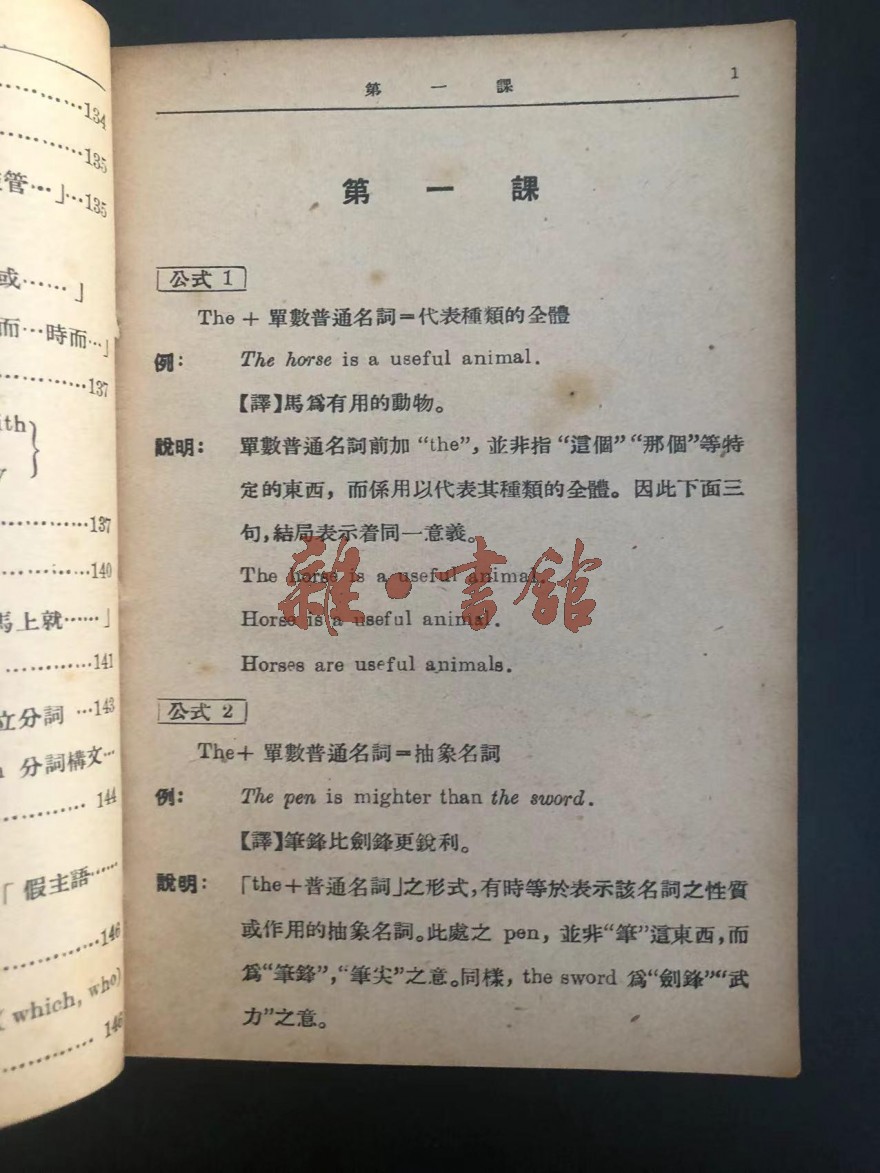 ……………134
……………135
管…」…135
或……」
而…時而…」
……………137
ith
y
……………137
……………140
馬上就……」
……………141
立分詞…143
分詞構文…
…………… 144
「假主語……
……………146
(which, who)
…………… 146
第一課 1
第一課
公式 1
The + 單數普通名詞=代表種類的全體
例: The horse is a useful animal.
【譯】馬爲有用的動物。
說明: 單數普通名詞前加“the”, 並非指“這個”“那個”等特
定的東西, 而係用以代表其種類的全體。因此下面三
句,結局表示着同一意義。
The horse is a useful animal.
Horse is a useful animal.
Horses are useful animals.
公式 2
The+ 單數普通名詞=抽象名詞
例: The pen is mighter than the sword.
【譯】筆鋒比劍鋒更銳利。
說明: 「the+普通名詞」之形式,有時等於表示該名詞之性質
或作用的抽象名詞。此處之 pen, 並非“筆”這東西,而
爲“筆鋒”,“筆尖”之意。同樣, the sword 爲“劍鋒”“武
力”之意。
雜·書館